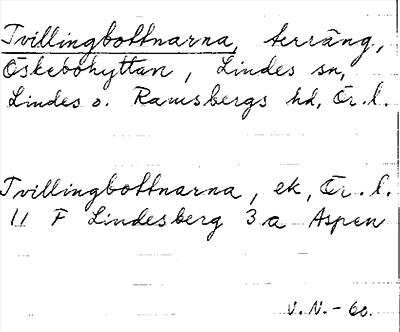 Tvillingbottnarna, terräng,
Öskebohyttan, Lindes sn,
Lindes o. Ramsbergs hd, Ör. l.
Tvillingbottnarna, ek, Ör. l.
11 F Lindesberg 3 a Aspen
V. N. - 60.